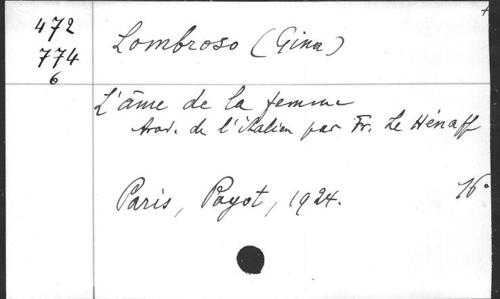 472
774
6
Lombroso (Gina)
L'âme de la femme
trad. de l'italien par Fr. Le Hénaff
Paris, Payot, 1924.
16°